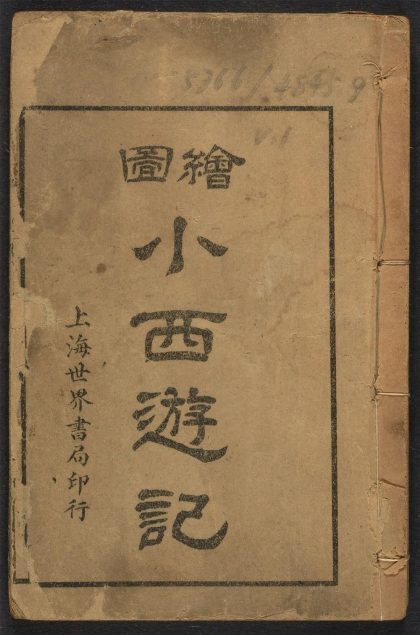 繪圖
小西遊記
上海世界書局印行
5766/4845.9
v.1